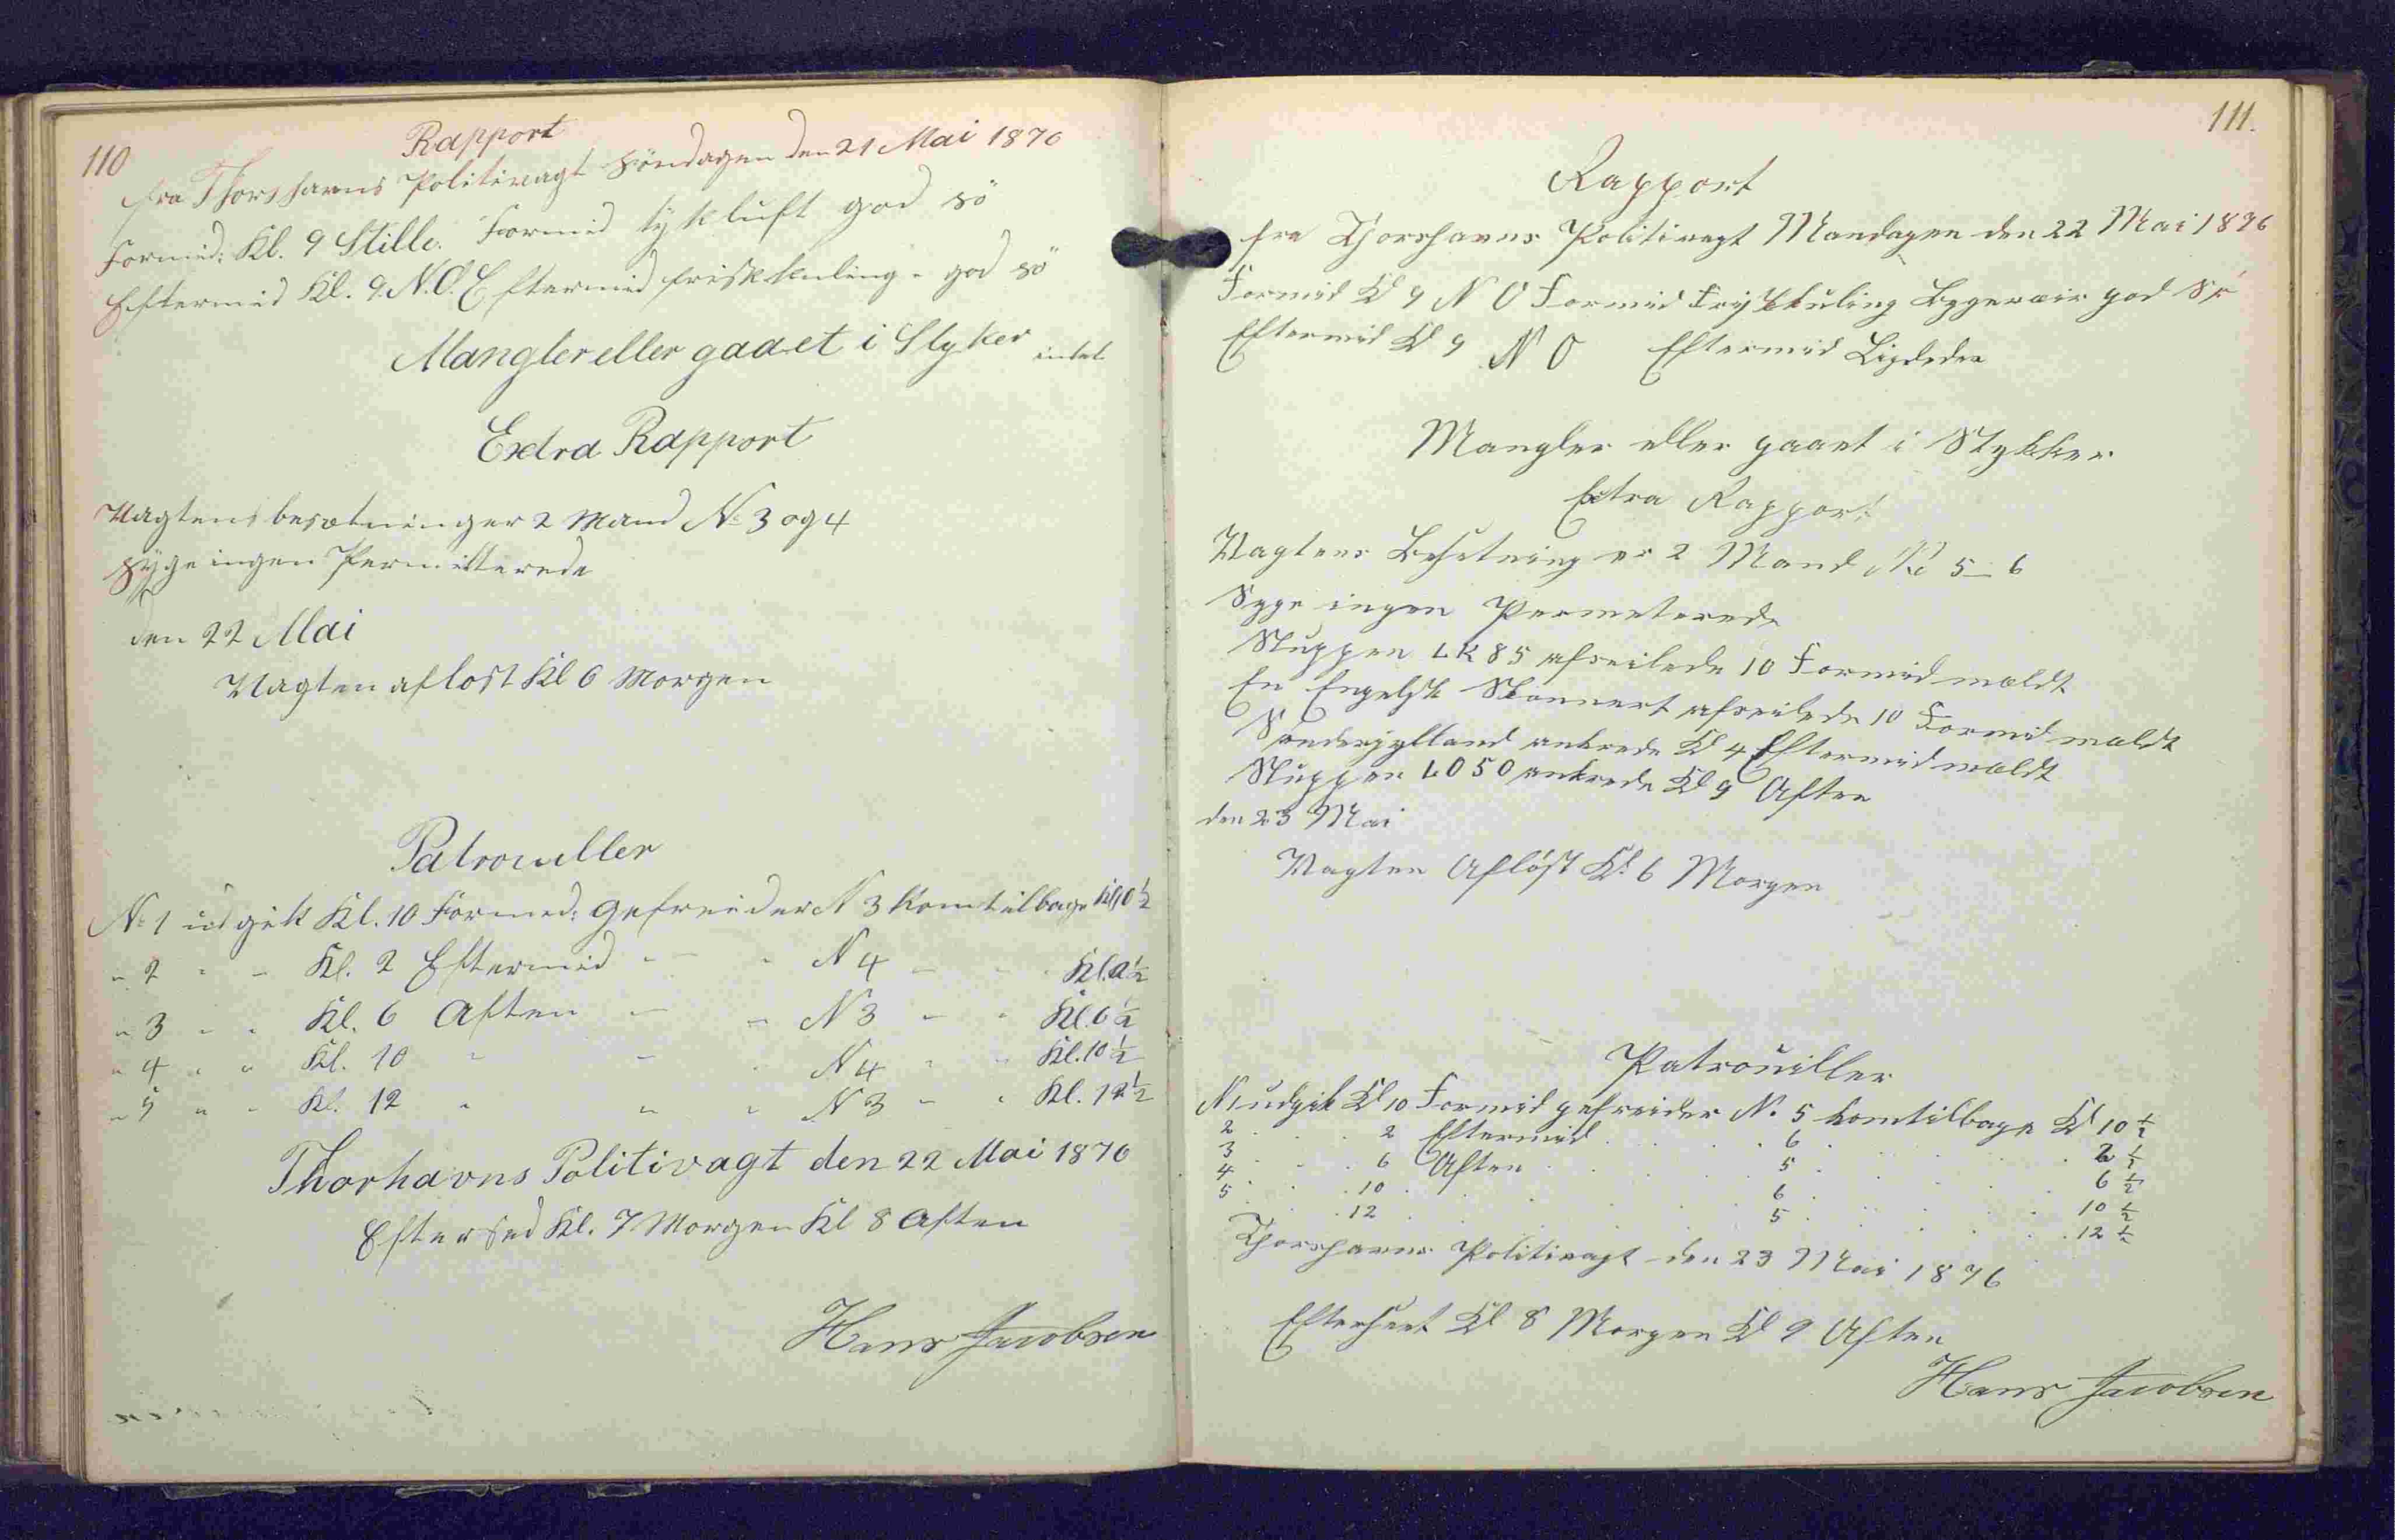 110
Rapport
fra Thorshavns Politivagt Söndagen den 21 Mai 1876
Formid: Kl. 9 Stille. Formid tykluft god sö
Eftermid Kl. 9. N.O. Eftermid frisk kuling - god sö
Mangler eller gaaet i Styker intet
Exdra Rapport
Vagtens besætning er 2 Mand No 3 og 4
syge ingen Permitterede
den 22 Mai
Vagten aflost Kl 6 Morgen
Patrouller
No 1 udgik Kl. 10 Formed: gefreider N 3 kom tilbage Kl 10 1/2
" 2 " " Kl. 2 Eftermid " " N 4 " " Kl. 2 1/2
" 3 " " Kl. 6 Aften " " N 3 " " Kl. 6 1/2
" 4 " " Kl. 10 " " " N 4 " " Kl. 10 1/2
" 5 " " Kl. 12 " " " N 3 " " Kl. 12 1/2
Thorhavns Politivagt den 22 Mai 1876
Efter sed Kl. 7 Morgen Kl 8 Aften
Hans Jacobsen
111.
Rapport
fra Thorshavns Politivagt Mandagen den 22 Mai 1876
Formid Kl 9 N O Formid Frisk kuling god Sø
Eftermid Kl 9 N O Eftermid Ligeledes
Mangler eller gaaet i Stykker
Extra Rapport
Vagtens Besetning er 2 Mand No 5 - 6
Syge ingen Permeterede
Sluppen LK 85 afseilede 10 Formid meldt
En Engelsk Skonnert afseilede 10 Formid meldt
Sönderjylland ankrede Kl 4 Eftermid meldt
Sluppen LO 50 ankrede Kl 9 Aften
den 23 Mai
Vagten Afløst Kl 6 Morgen
Patrouiller
N 1 udgik Kl 10 Formid gefreider No 5 kom tilbage Kl 10 1/2
2 . . . 2 Eftermid . . . 6 . . . 2 1/2
3 . . . 6 Aften . . . 5 . . . 6 1/2
4 . . . 10 . . . 6 . . . 10 1/2
5 . . . 12 . . . 5 . . . 12 1/2
Thorshavns Politivagt den 23 Mai 1876
Efterseet Kl 8 Morgen Kl 9 Aften
Hans Jacobsen